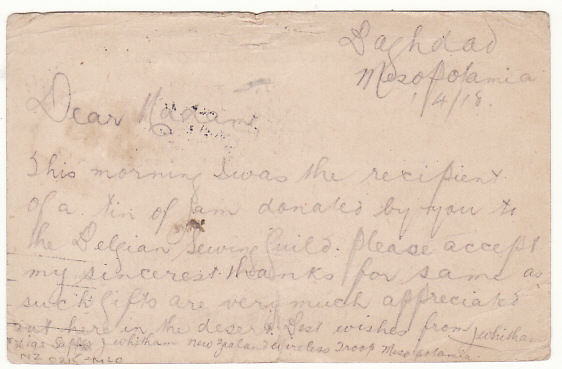 Baghdad
Mesopotamia
1/4/18.
Dear Madam,
This morning I was the recipient
of a tin of Jam donated by you to
the Belgian Sewing Guild. Please accept
my sincerest thanks for same as
such gifts are very much appreciated
out here in the desert. Best wishes from J Whitham
J Whitham New Zealand Wireless Troop Mesopotamia